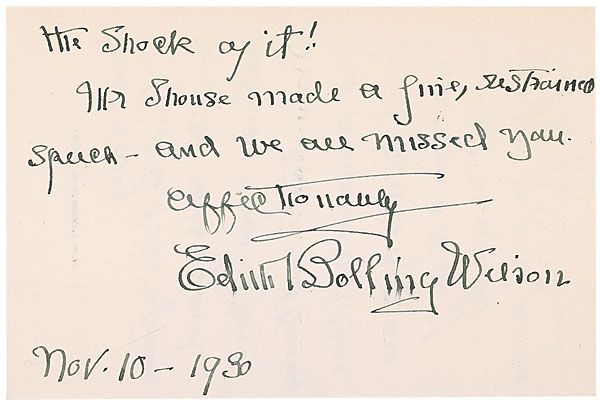 the Shock of it!
Mr Shouse made a fine, restrained
speech - and we all missed you.
Affectionately
Edith Bolling Wilson
Nov. 10 - 1930